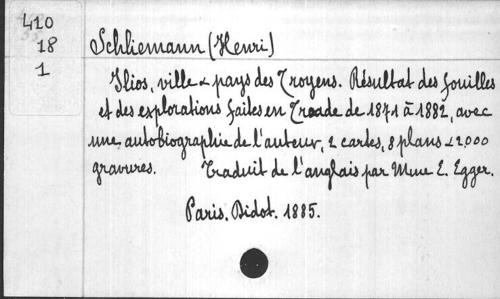 410
18
1
Schliemann (Henri)
Ilios, ville & pays des Troyens. Résultat des fouilles
et des explorations faites en Troade de 1871 à 1882, avec
une autobiographie de l'auteur, 2 cartes, 8 plans & 2,000
gravures. Traduit de l'anglais par Mme E. Egger.
Paris. Didot. 1885.